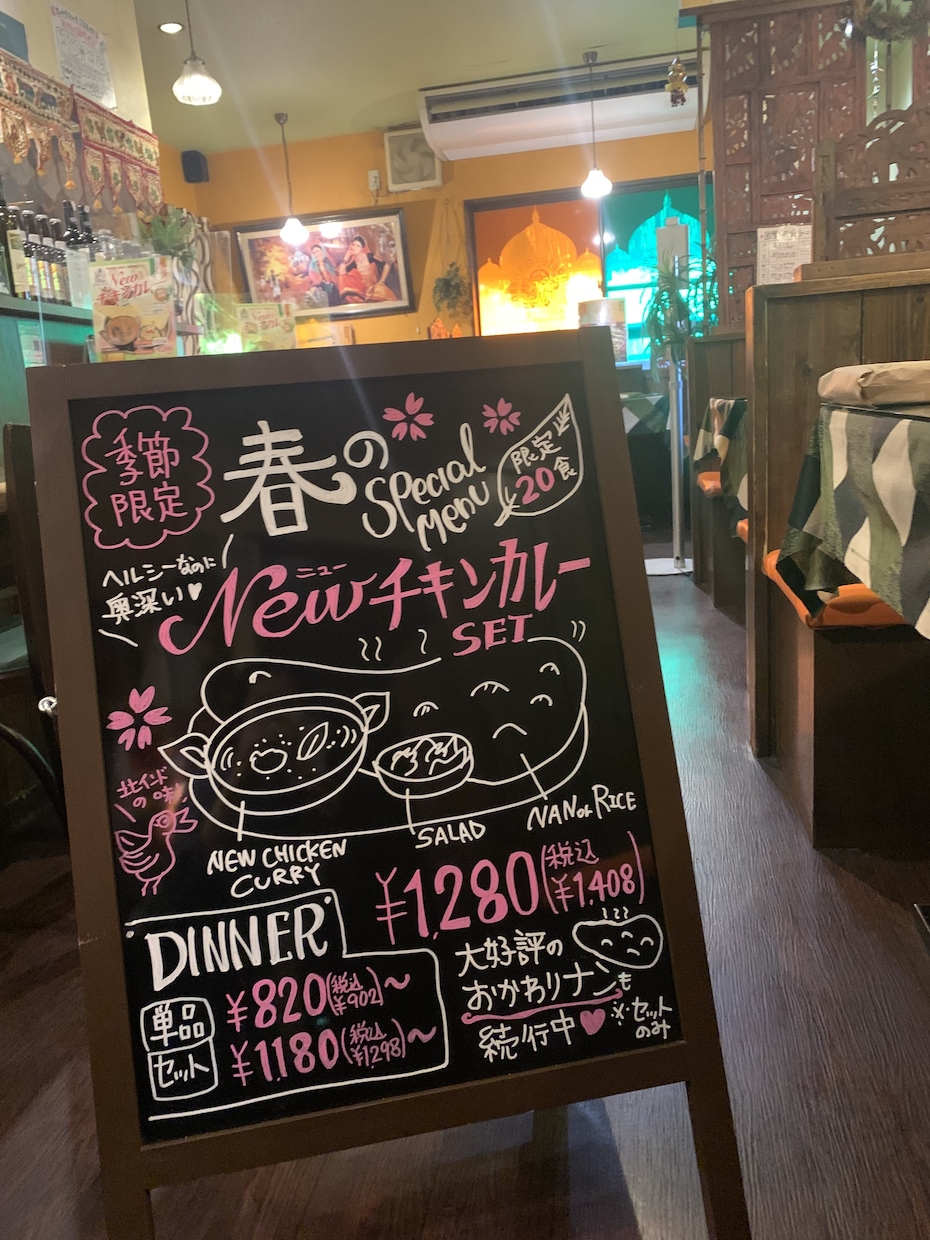 季節
限定
春の
Special
Menu
限定
20食
ヘルシーなのに
奥深い♥
ニュー
Newチキンカレー
SET
北インド
の味!
NEW CHICKEN
CURRY
SALAD
NAN or RICE
¥1,280(税込
¥1,408)
DINNER
単品
¥820(税込
¥902)～
セット
¥1,180(税込
¥1,298)～
大好評の
おかわりナンも
続行中♥
※セット
のみ
New